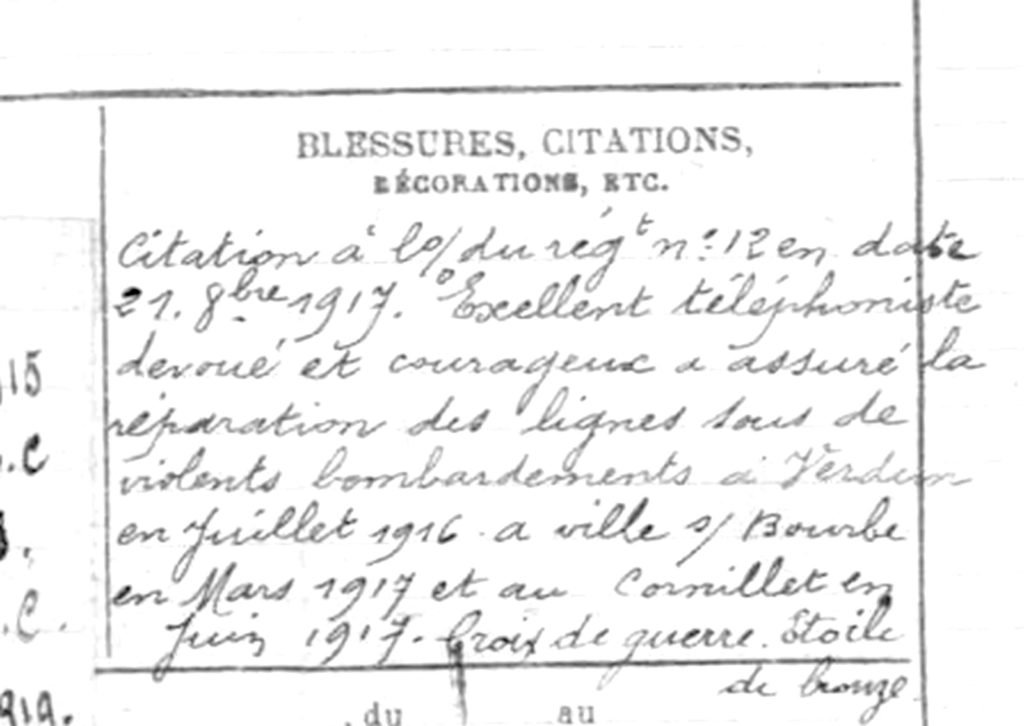 BLESSURES, CITATIONS,
DÉCORATIONS, ETC.
Citation à l'o/ du régt n° 12 en date
21. 8bre 1917. "Excellent téléphoniste
devoué et courageux a assuré la
réparation des lignes sous de
violents bombardements à Verdun
en Juillet 1916 a ville s/ Bourbe
en Mars 1917 et au Cornillet en
Juin 1917. Croix de guerre. Etoile
de bronze
15
.C
.C.
1919.
du au